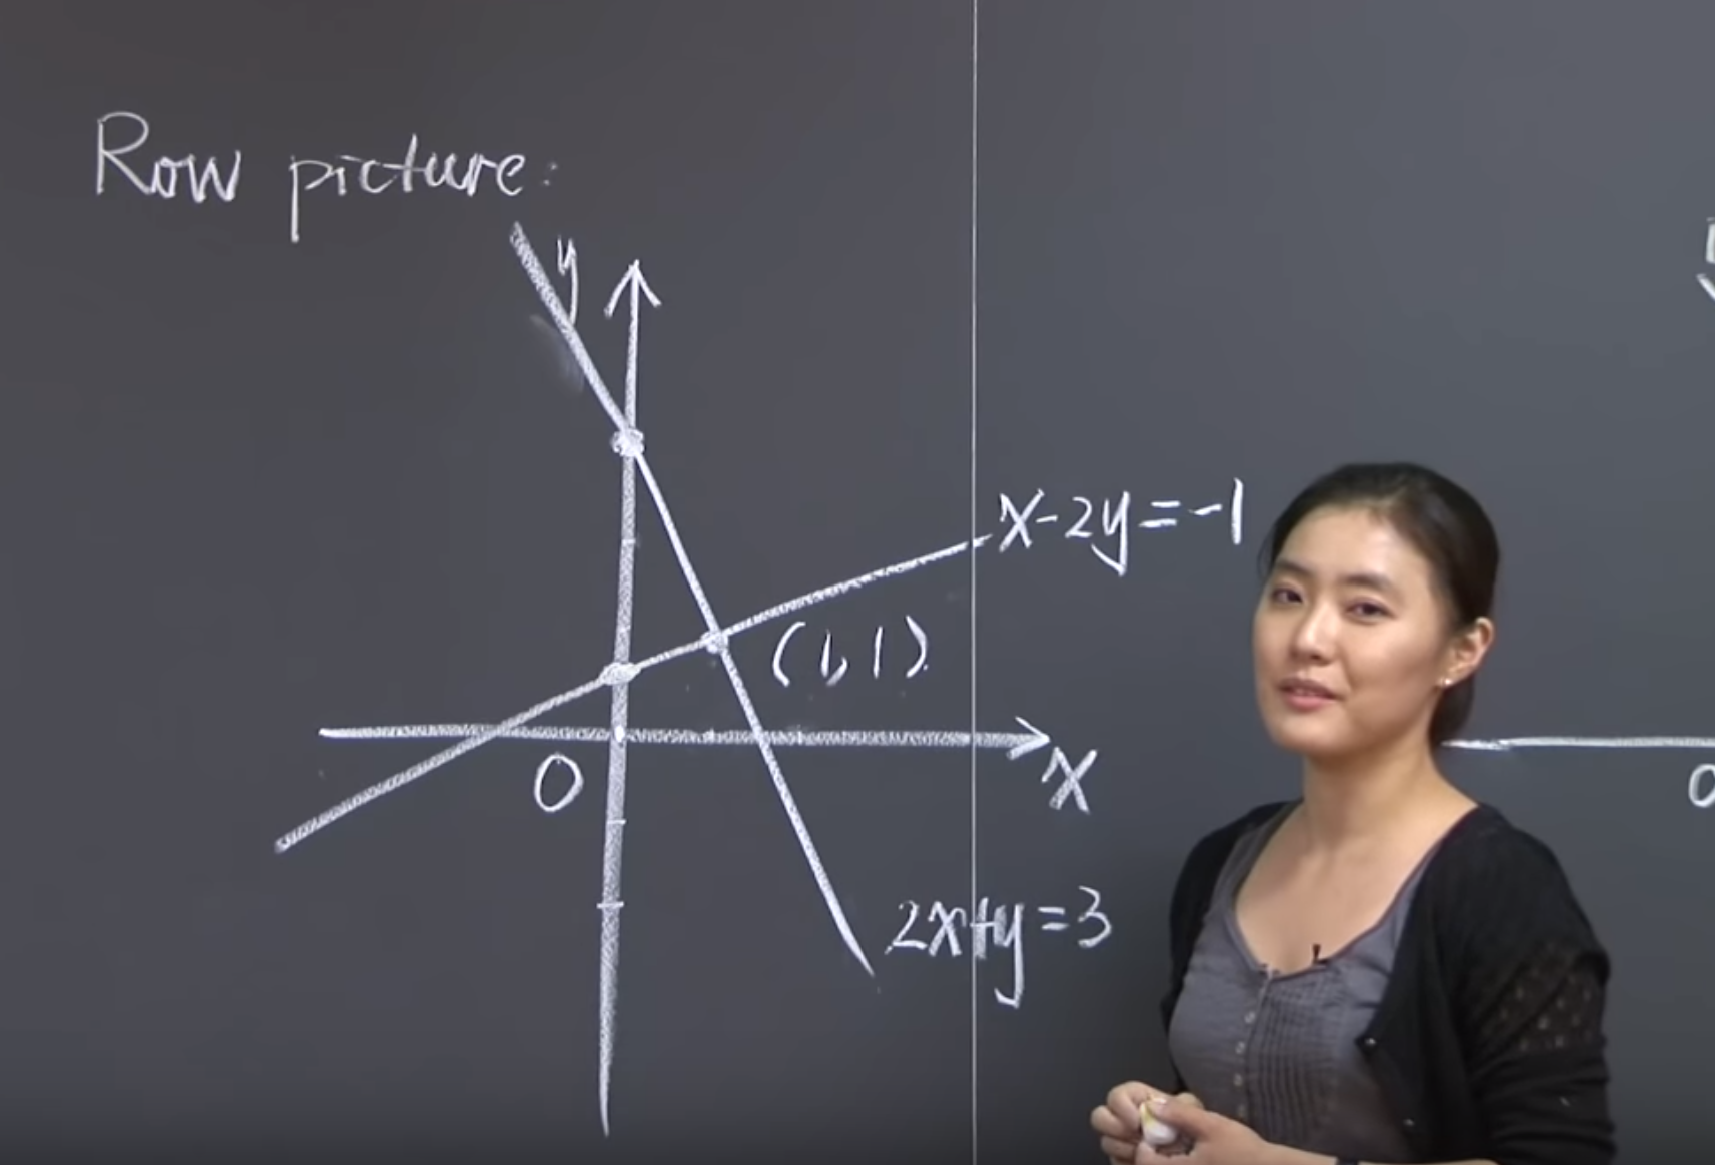 Row picture:
y
x-2y=-1
(1,1)
0
x
2x+y=3